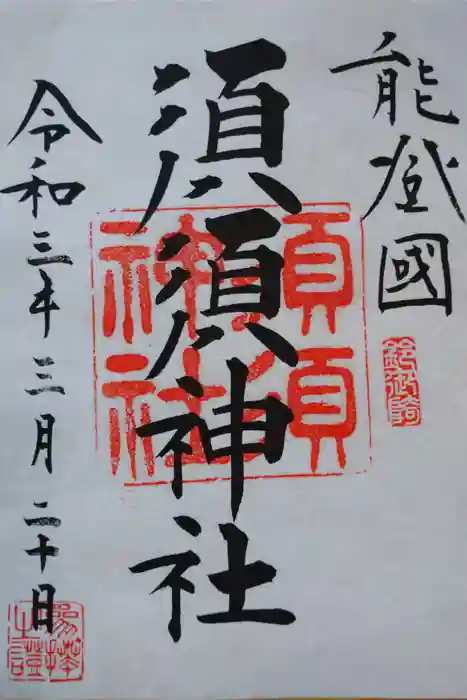 能登國
須須神社
令和三年三月二十日
須須
神社